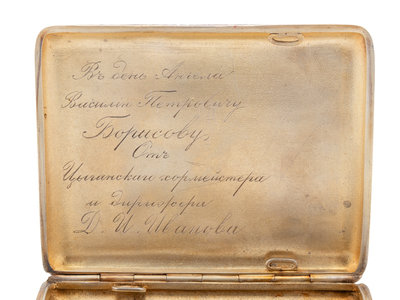 Въ день Ангела
Василію Петровичу
Борисову,
Отъ
Цыганскаго хормейстера
и дирижера
Д. И. Иванова